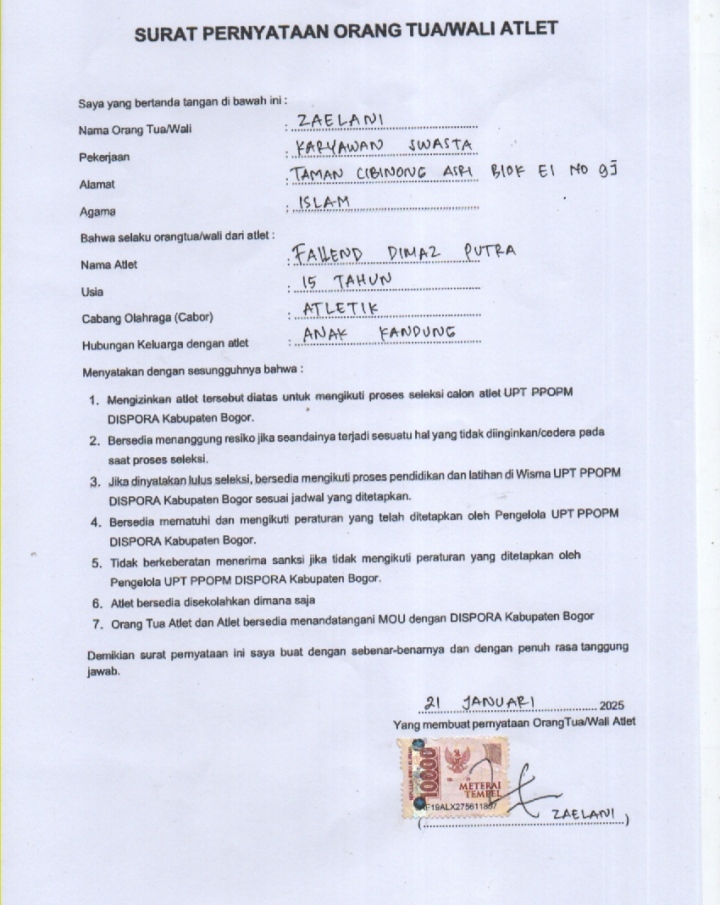 SURAT PERNYATAAN ORANG TUA/WALI ATLET
Saya yang bertanda tangan di bawah ini :
Nama Orang Tua/Wali : ZAELANI
Pekerjaan : KARYAWAN SWASTA
Alamat : TAMAN CIBINONG ASRI BLOK E1 NO 9J
Agama : ISLAM
Bahwa selaku orangtua/wali dari atlet :
Nama Atlet : FALLEND DIMAZ PUTRA
Usia : 15 TAHUN
Cabang Olahraga (Cabor) : ATLETIK
Hubungan Keluarga dengan atlet : ANAK KANDUNG
Menyatakan dengan sesungguhnya bahwa :
1. Mengizinkan atlet tersebut diatas untuk mengikuti proses seleksi calon atlet UPT PPOPM
DISPORA Kabupaten Bogor.
2. Bersedia menanggung resiko jika seandainya terjadi sesuatu hal yang tidak diinginkan/cedera pada
saat proses seleksi.
3. Jika dinyatakan lulus seleksi, bersedia mengikuti proses pendidikan dan latihan di Wisma UPT PPOPM
DISPORA Kabupaten Bogor sesuai jadwal yang ditetapkan.
4. Bersedia mematuhi dan mengikuti peraturan yang telah ditetapkan oleh Pengelola UPT PPOPM
DISPORA Kabupaten Bogor.
5. Tidak berkeberatan menerima sanksi jika tidak mengikuti peraturan yang ditetapkan oleh
Pengelola UPT PPOPM DISPORA Kabupaten Bogor.
6. Atlet bersedia disekolahkan dimana saja
7. Orang Tua Atlet dan Atlet bersedia menandatangani MOU dengan DISPORA Kabupaten Bogor
Demikian surat pernyataan ini saya buat dengan sebenar-benarnya dan dengan penuh rasa tanggung
jawab.
21 JANUARI 2025
Yang membuat pernyataan OrangTua/Wali Atlet
10000
METERAI
TEMPEL
(ZAELANI)